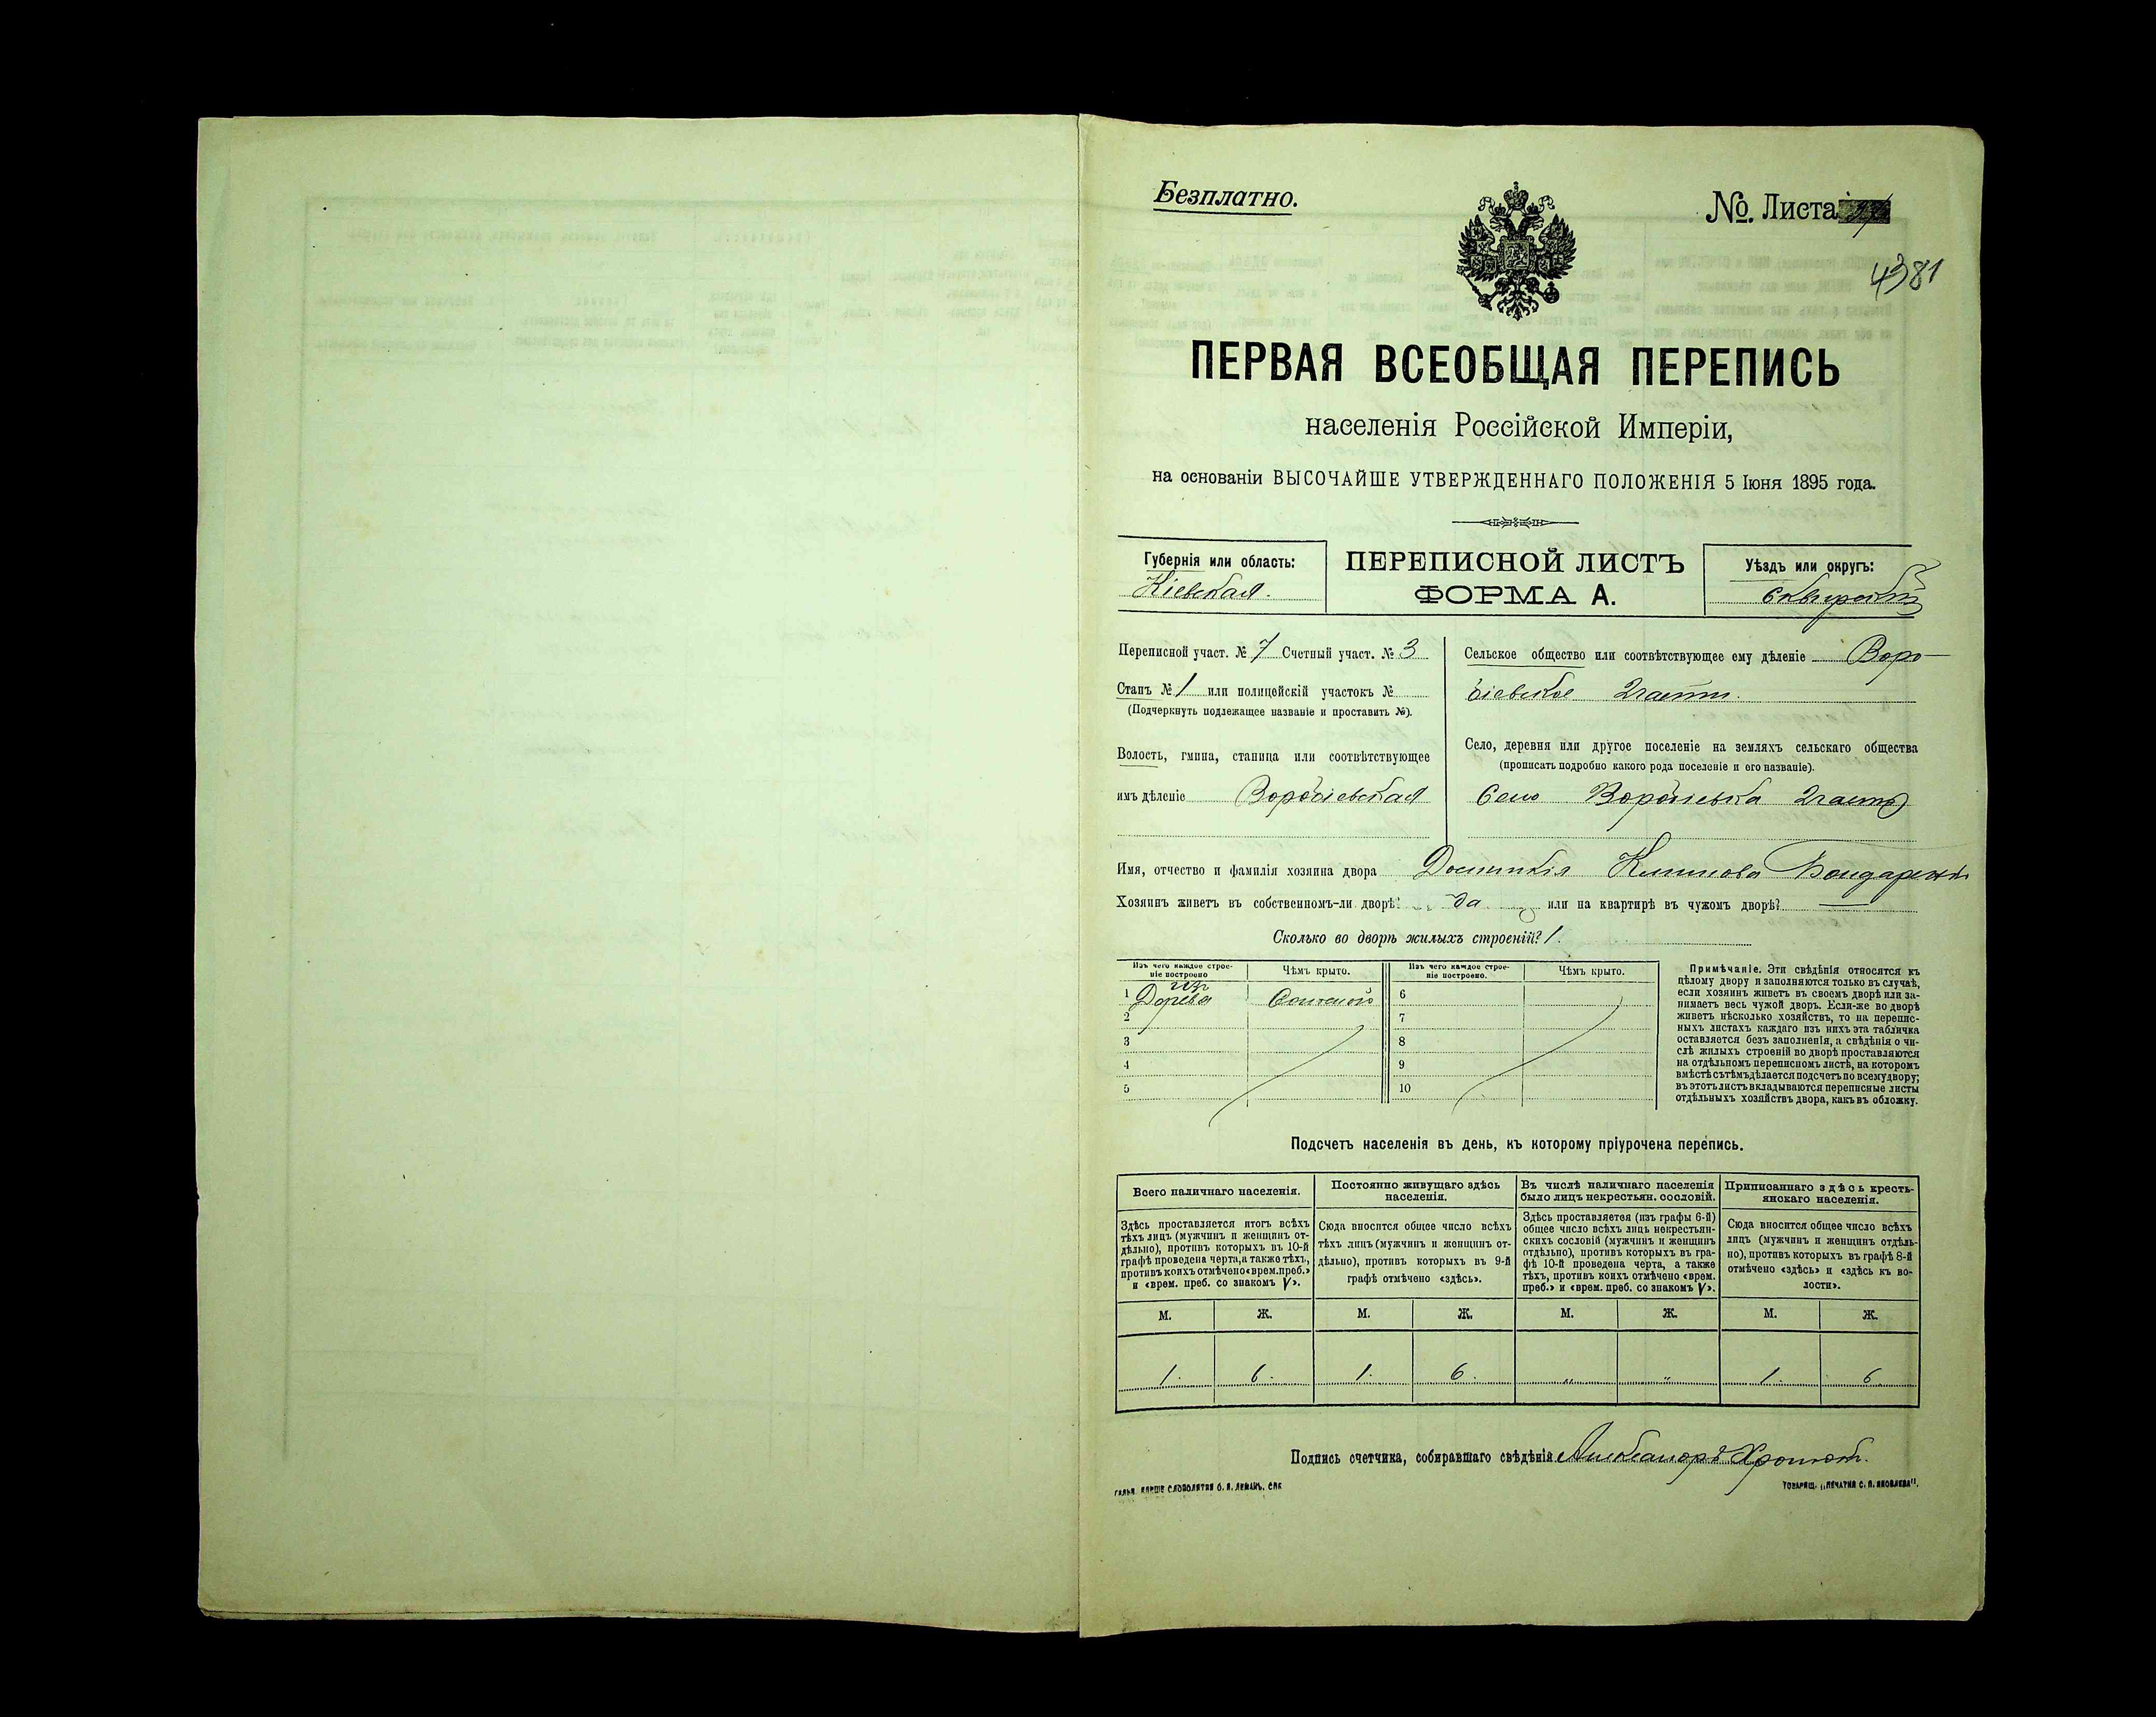 Безплатно.
№ Листа
4381
ПЕРВАЯ ВСЕОБЩАЯ ПЕРЕПИСЬ
населенія Россійской Имперіи,
на основаніи ВЫСОЧАЙШЕ УТВЕРЖДЕННАГО ПОЛОЖЕНІЯ 5 Іюня 1895 года.
Губернія или область:
Кіевская.
ПЕРЕПИСНОЙ ЛИСТЪ
ФОРМА А.
Уѣздъ или округъ:
Сквирскій
Переписной участ. № 7 Счетный участ. № 3
Станъ № 1 или полицейскій участокъ №
(Подчеркнуть подлежащее названіе и проставить №).
Волость, гмина, станица или соотвѣтствующее
имъ дѣленіе Воробіевская
Сельское общество или соотвѣтствующее ему дѣленіе Воро-
біевское 2 части.
Село, деревня или другое поселеніе на земляхъ сельскаго общества
(прописать подробно какого рода поселеніе и его названіе).
Село Воробіевка 2 часть
Имя, отчество и фамилія хозяина двора Доминикія Климова Бондаренко
Хозяинъ живетъ въ собственномъ-ли дворѣ? да или на квартирѣ въ чужомъ дворѣ?
Сколько во дворѣ жилыхъ строеній? 1.
Изъ чего каждое строе-
ніе построено
Чѣмъ крыто.
Изъ чего каждое строе-
ніе построено.
Чѣмъ крыто.
1 изъ Дерева Соломой 6
2 7
3 8
4 9
5 10
Примѣчаніе. Эти свѣдѣнія относятся къ
цѣлому двору и заполняются только въ случаѣ,
если хозяинъ живетъ въ своемъ дворѣ или за-
нимаетъ весь чужой дворъ. Если-же во дворѣ
живетъ нѣсколько хозяйствъ, то на перепис-
ныхъ листахъ каждаго изъ нихъ эта табличка
оставляется безъ заполненія, а свѣдѣнія о чи-
слѣ жилыхъ строеній во дворѣ проставляются
на отдѣльномъ переписномъ листѣ, на которомъ
вмѣстѣ съ тѣмъ дѣлается подсчетъ по всему двору;
въ этотъ листъ вкладываются переписные листы
отдѣльныхъ хозяйствъ двора, какъ въ обложку.
Подсчетъ населенія въ день, къ которому пріурочена перепись.
Всего наличнаго населенія.
Постоянно живущаго здѣсь
населенія.
Въ числѣ наличнаго населенія
было лицъ некрестьян. сословій.
Приписаннаго здѣсь кресть-
янскаго населенія.
Здѣсь проставляется итогъ всѣхъ
тѣхъ лицъ (мужчинъ и женщинъ от-
дѣльно), противъ которыхъ въ 10-й
графѣ проведена черта, а также тѣхъ,
противъ коихъ отмѣчено «врем. преб.»
и «врем. преб. со знакомъ V».
Сюда вносится общее число всѣхъ
тѣхъ лицъ (мужчинъ и женщинъ от-
дѣльно), противъ которыхъ въ 9-й
графѣ отмѣчено «здѣсь».
Здѣсь проставляется (изъ графы 6-й)
общее число всѣхъ лицъ некрестьян-
скихъ сословій (мужчинъ и женщинъ
отдѣльно), противъ которыхъ въ гра-
фѣ 10-й проведена черта, а также
тѣхъ, противъ коихъ отмѣчено «врем.
преб.» и «врем. преб. со знакомъ V».
Сюда вносится общее число всѣхъ
лицъ (мужчинъ и женщинъ отдѣль-
но), противъ которыхъ въ графѣ 8-й
отмѣчено «здѣсь» и «здѣсь къ во-
лости».
М. Ж. М. Ж. М. Ж. М. Ж.
1. 6. 1. 6. „ „ 1. 6
Подпись счетчика, собиравшаго свѣдѣнія Александръ
СЛОВОЛИТНИ О. И. ЛЕМАНЪ, СПБ
ТОВАРИЩ. „ПЕЧАТНЯ С. П. ЯКОВЛЕВА".